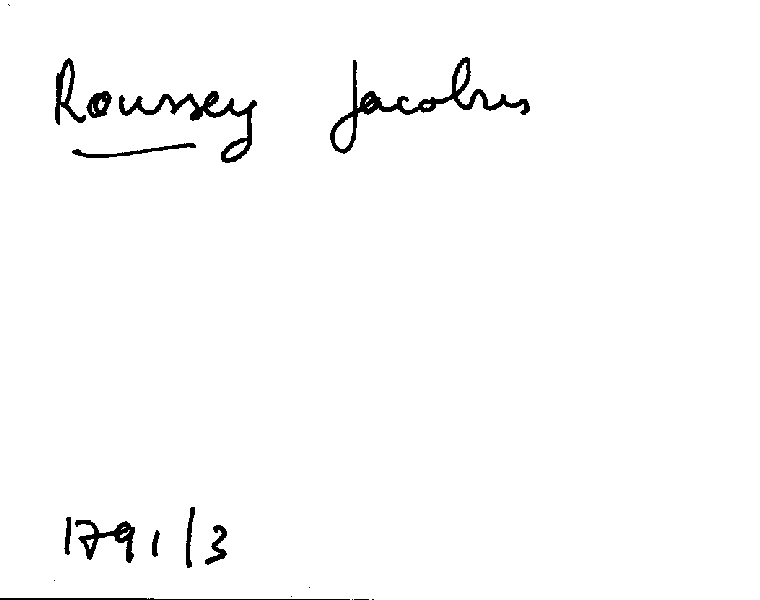 Roussey Jacobus
1791/3